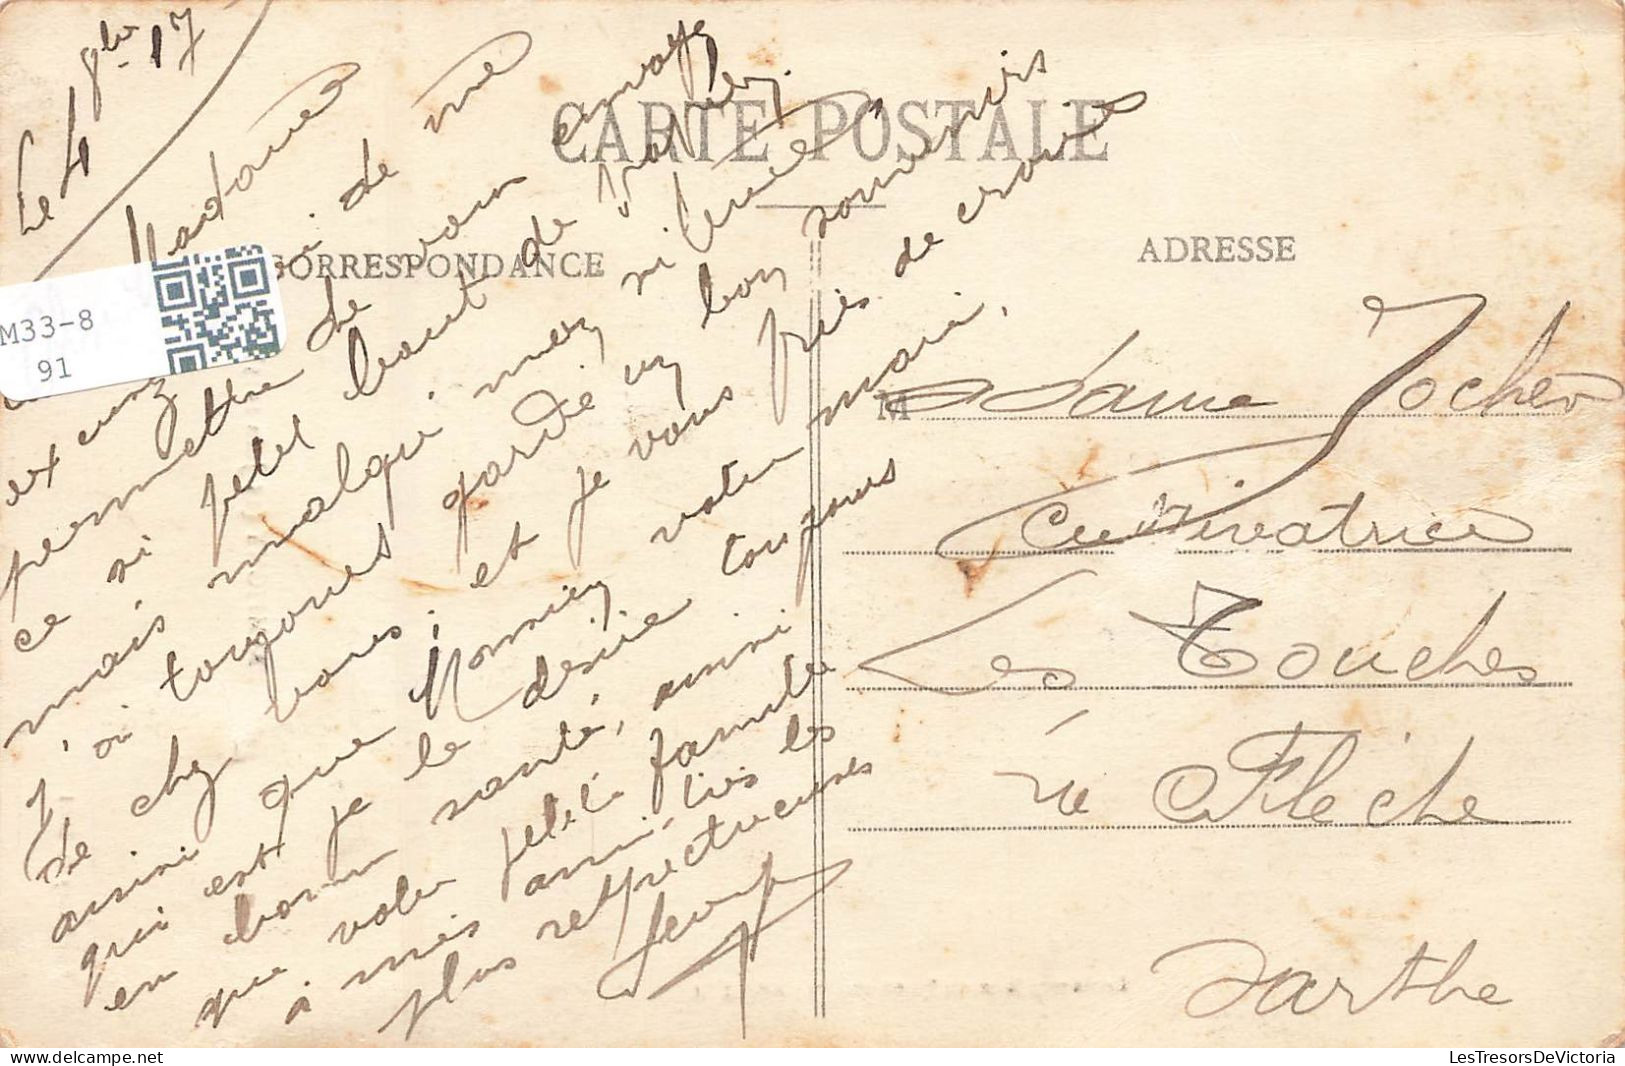 Le 4 9bre 17
CARTE POSTALE
CORRESPONDANCE
ADRESSE
M33-8
91
Madame
excusez moi de me
permettre de vous envoyé
ce si petit bout de
mais malgré moi si
j'ai toujours gardé un bon souvenirs
de chez vous; et je vous pries de croire
ainsi que Monsieur votre mari,
qui est je le désire toujours
en bonne santé, ainsi
que votre petite famille
à mes amitiés les
plus respectueuses
Madame Jocher
Cultivatrice
Les Touches
la Flèche
Sarthe
LesTresorsDeVictoria